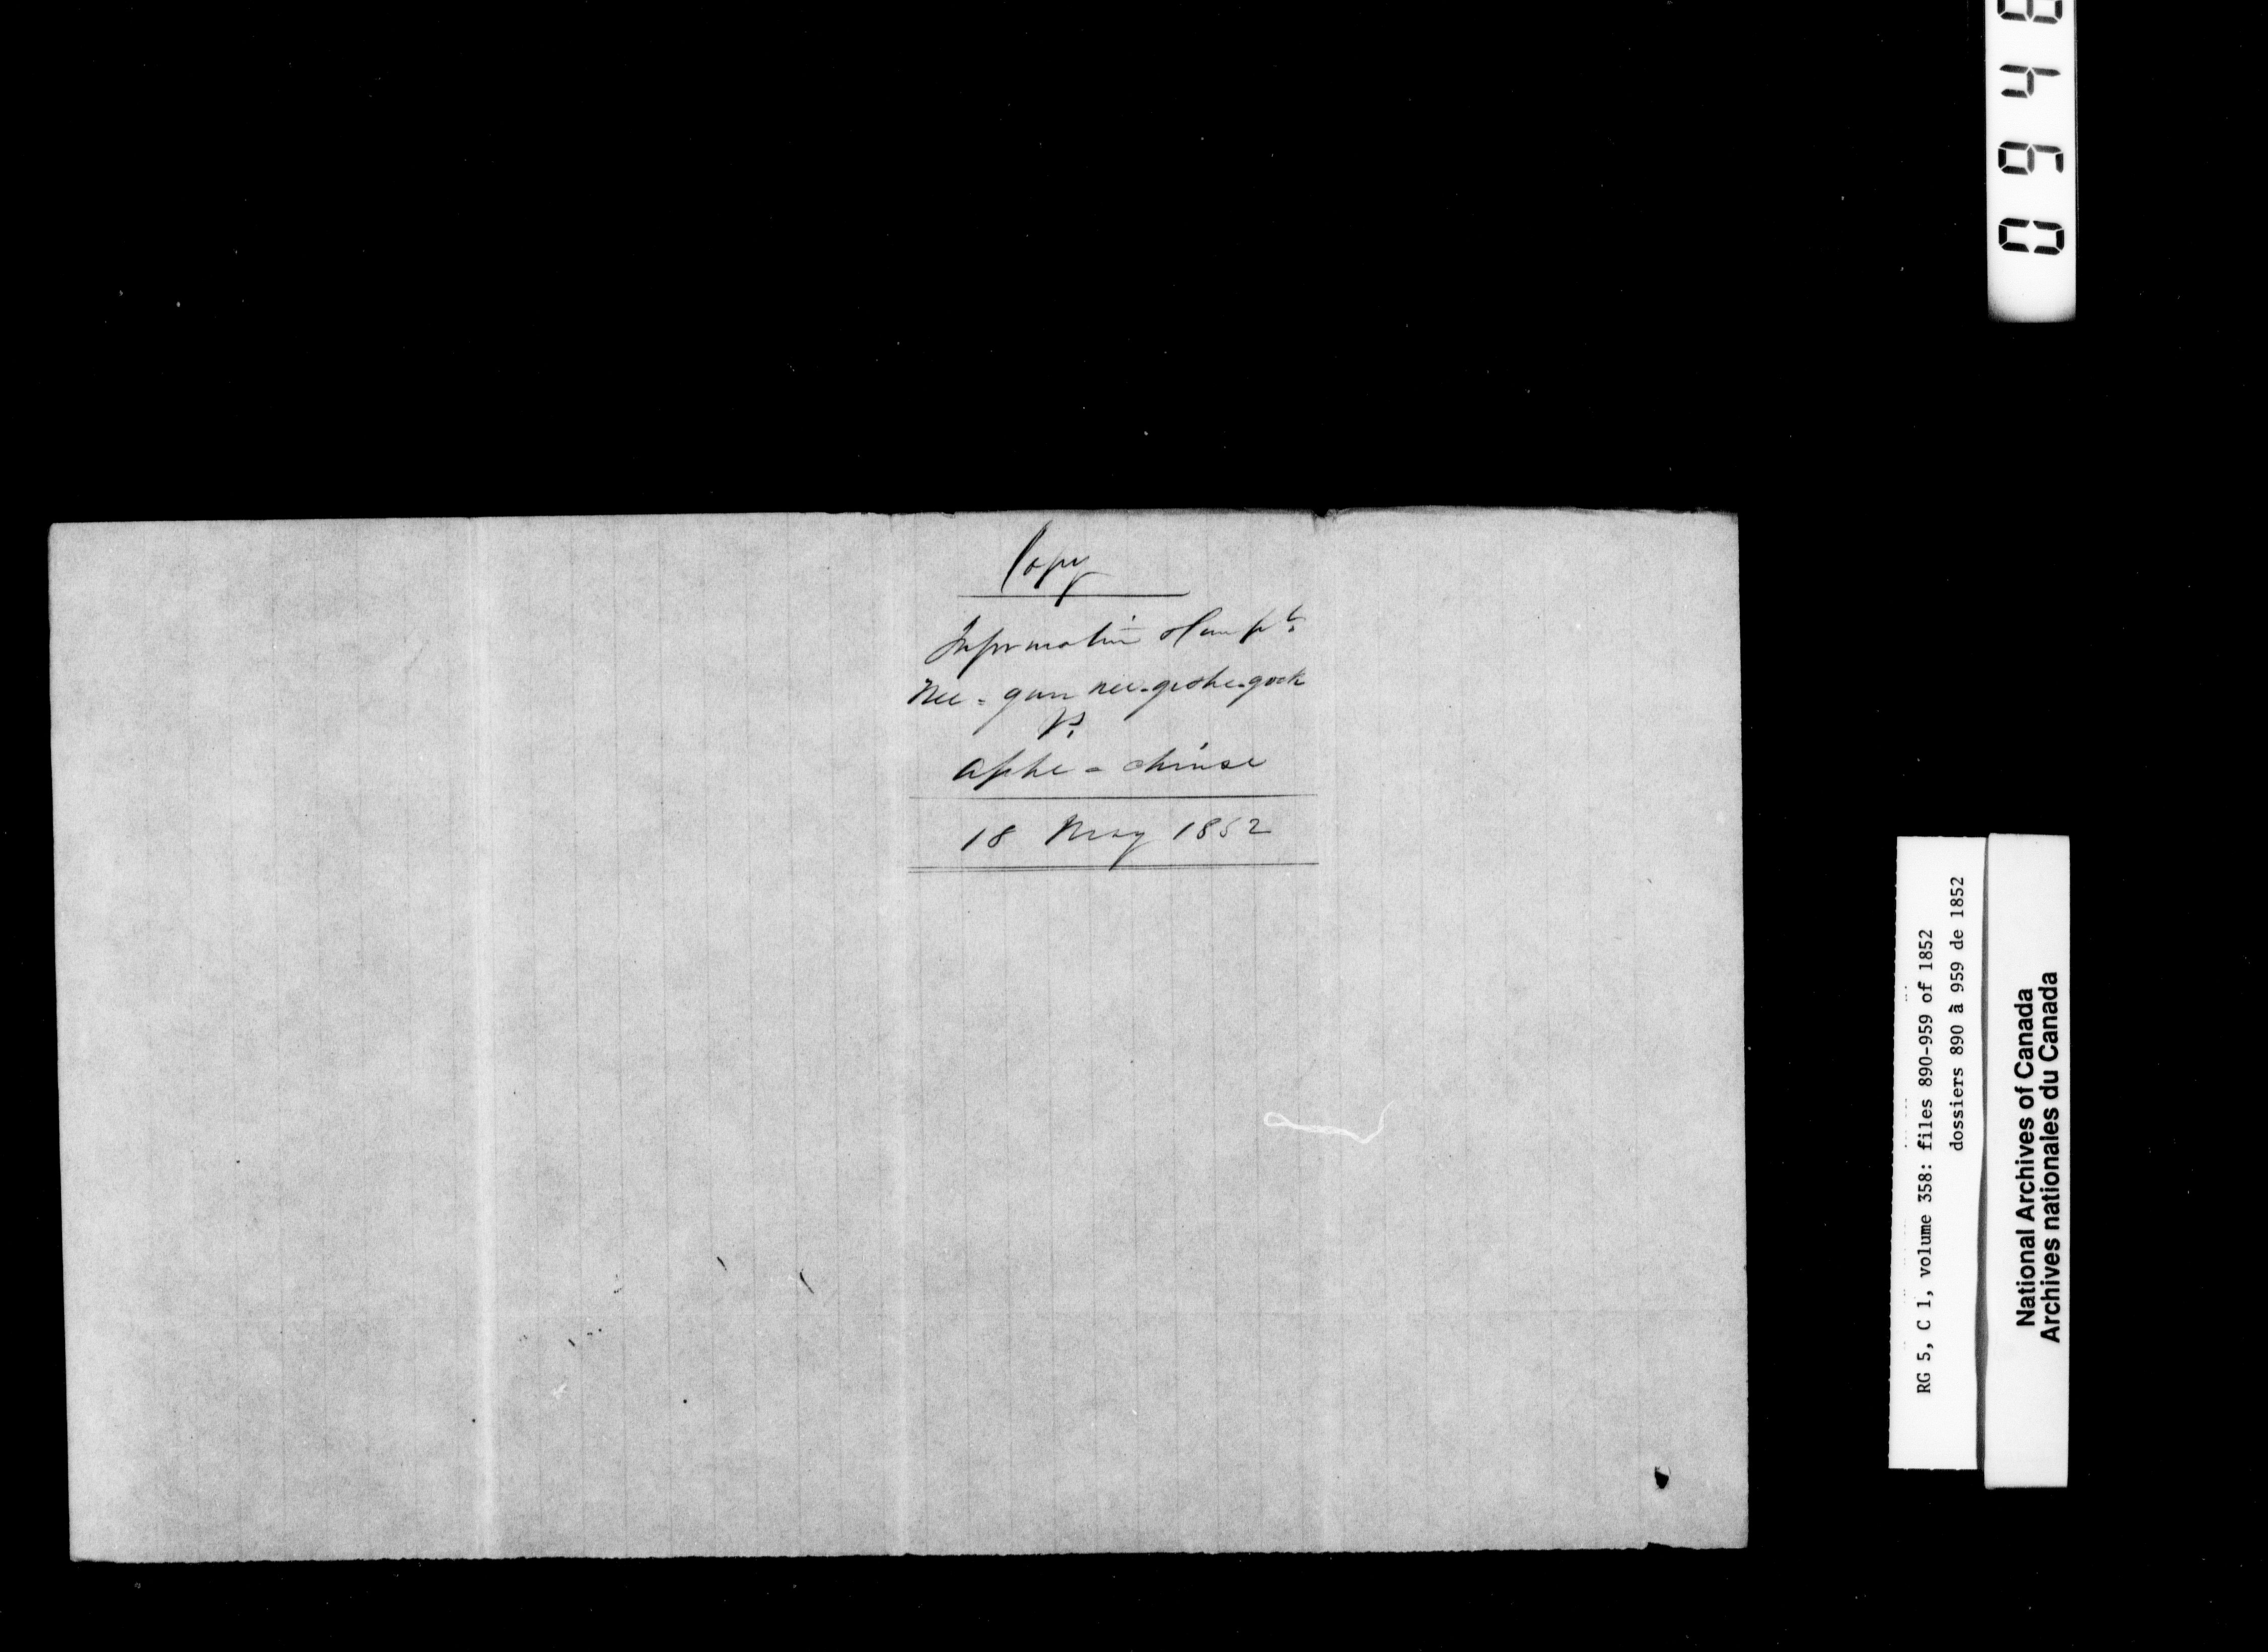 Copy
Information & Compt.
Nee-gau nee-goshe-gock
Vs.
Aphe-chinse
18 May 1852
RG 5, C 1, volume 358: files 890-959 of 1852
dossiers 890 à 959 de 1852
National Archives of Canada
Archives nationales du Canada
0948